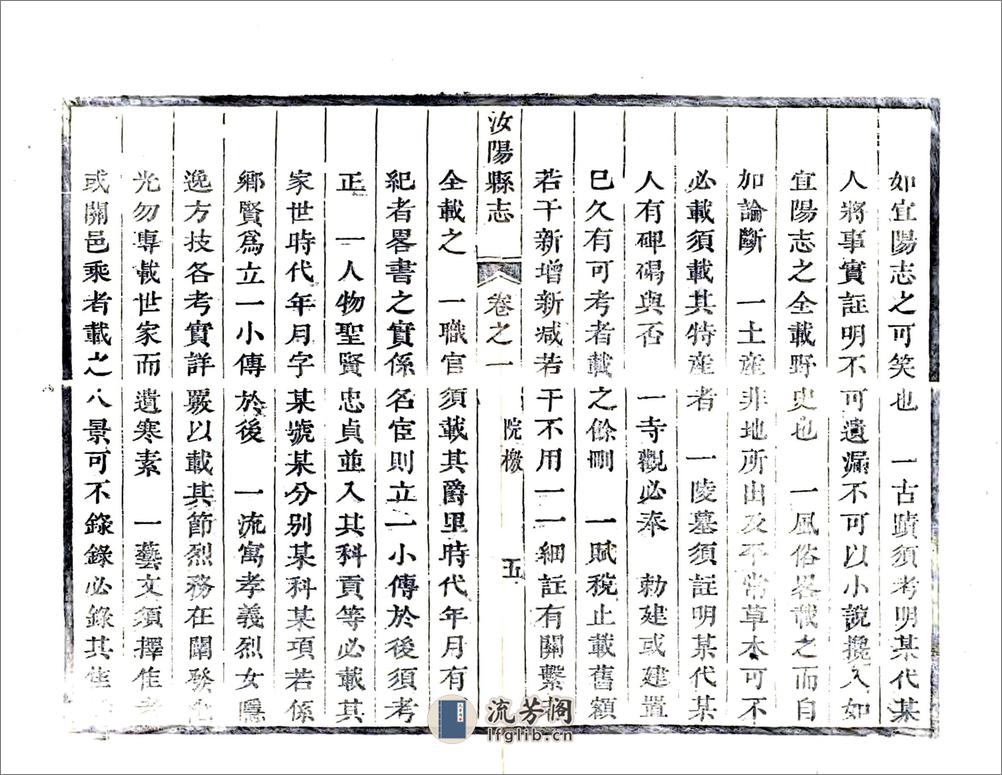 如宜陽志之可笑也　一古蹟須考明某代某
人將事實註明不可遺漏不可以小說攙入如
宜陽志之全載野史也　一風俗畧載之而自
加論斷　一土産非地所出及平常草木可不
必載須載其特産者　一陵墓須註明某代某
人有碑碣與否　一寺觀必奉　勅建或建置
已久有可考者載之餘刪　一賦稅止載舊額
若干新增新減若干不用一一細註有關繫
汝陽縣志　卷之一　院檄　五
全載之　一職官須載其爵里時代年月有
紀者畧書之實係名宦則立一小傳於後須考
正　一人物聖賢忠貞並入其科貢等必載其
家世時代年月字某號某分别某科某項若係
鄉賢爲立一小傳於後　一流寓孝義烈女隱
逸方技各考實詳覈以載其節烈務在闡發
光勿專載世家而遺寒素　一藝文須擇佳者
或關邑乘者載之八景可不錄錄必錄其佳
流芳閣
lfglib.cn